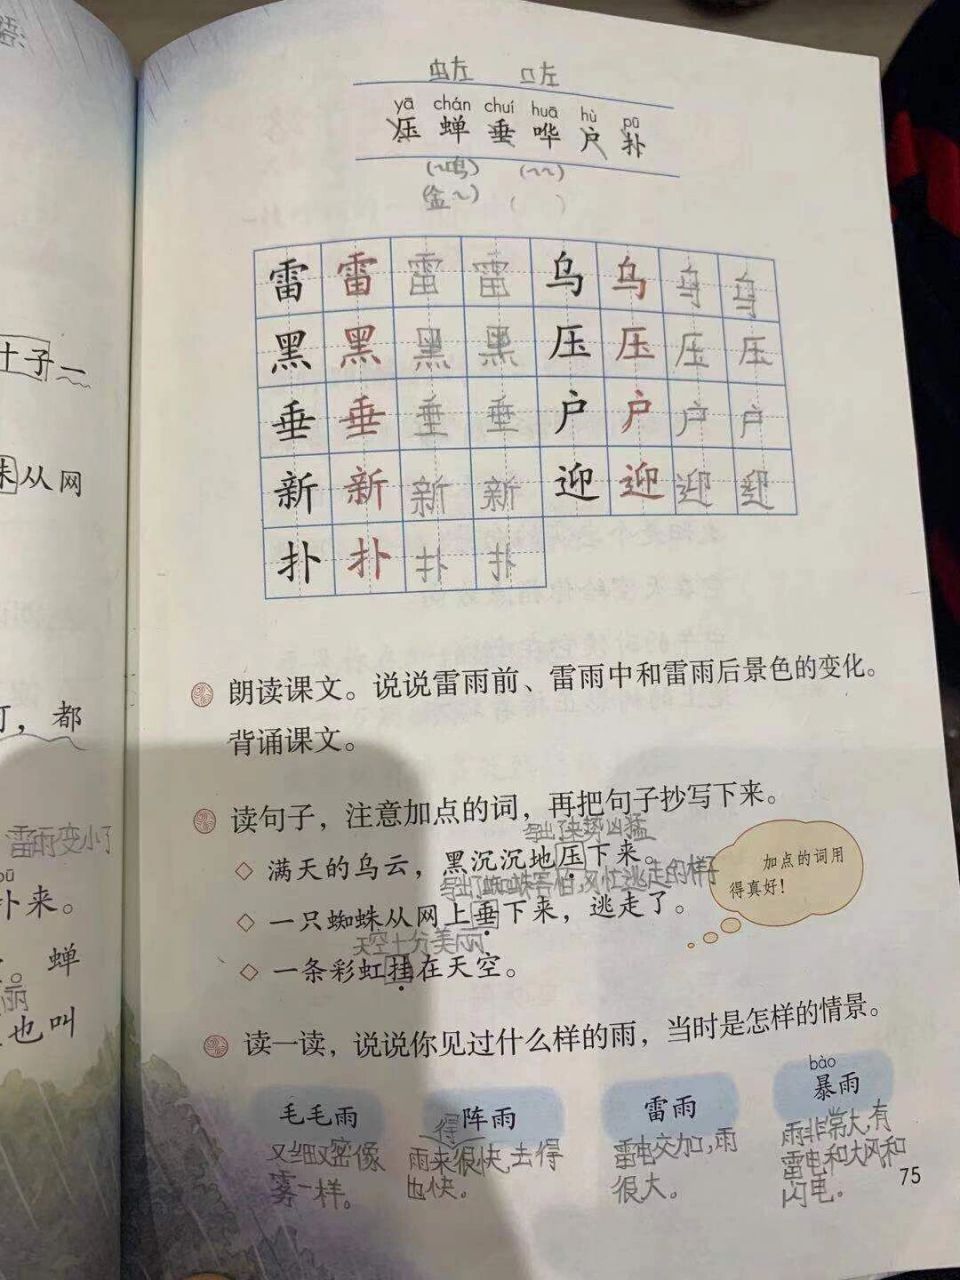 土子一
蛛从网
丁，都
雷雨变小了
扑来。
。蝉
丽
也叫
虫左 口左
yā chán chuí huā hù pū
压 蝉 垂 哗 户 扑
(~鸣) (~~)
(金~) ( )
雷 雷 雷 雷 乌 乌 乌 乌
黑 黑 黑 黑 压 压 压 压
垂 垂 垂 垂 户 户 户 户
新 新 新 新 迎 迎 迎 迎
扑 扑 扑 扑
朗读课文。说说雷雨前、雷雨中和雷雨后景色的变化。
背诵课文。
读句子，注意加点的词，再把句子抄写下来。
写出了来势凶猛
◇ 满天的乌云，黑沉沉地压下来。
写出了蜘蛛害怕,风忙逃走的样子
◇ 一只蜘蛛从网上垂下来，逃走了。
天空十分美丽
◇ 一条彩虹挂在天空。
加点的词用
得真好！
读一读，说说你见过什么样的雨，当时是怎样的情景。
bào
毛毛雨 阵雨 雷雨 暴雨
又细又密像
雾一样。
得
雨来很快,去得
也快。
雷电交加,雨
很大。
雨非常大,有
雷电和大风和
闪电。
75